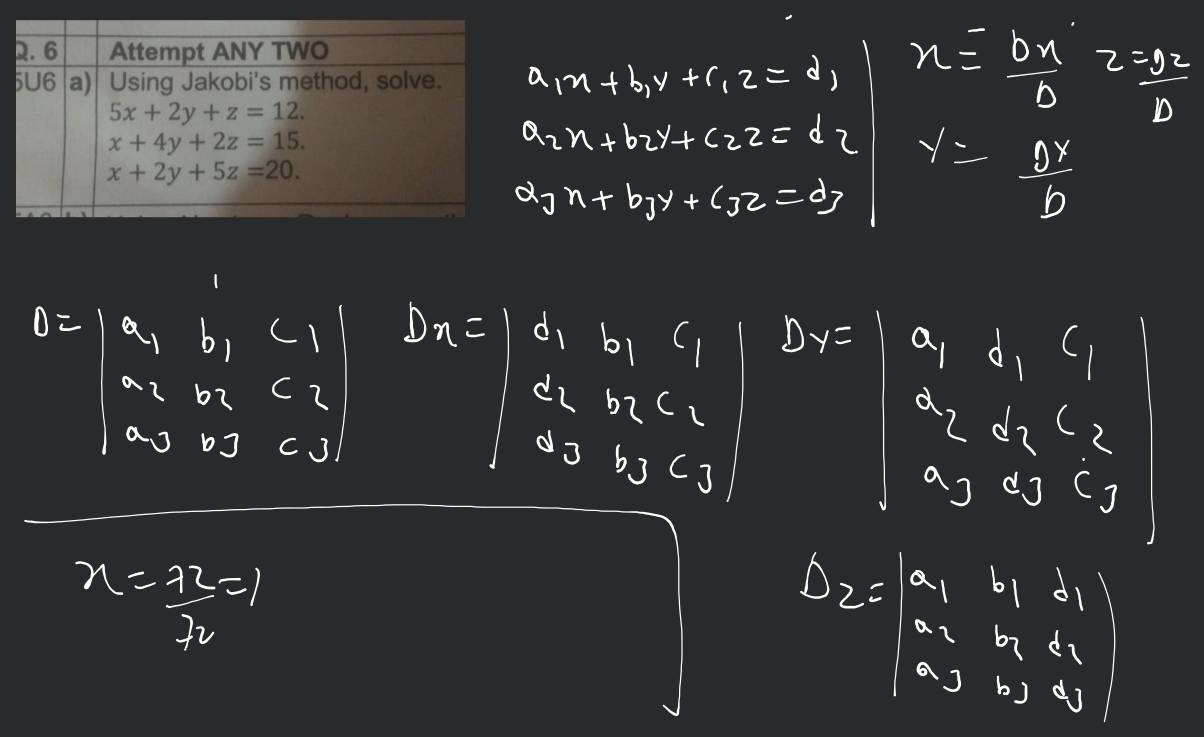 Q. 6 Attempt ANY TWO
5U6 a) Using Jakobi's method, solve.
5x + 2y + z = 12.
x + 4y + 2z = 15.
x + 2y + 5z =20.
a1x + b1y + c1z = d1
a2x + b2y + c2z = d2
a3x + b3y + c3z = d3
x = Dx/D z = Dz/D
y = Dy/D
D = | a1 b1 c1 |
a2 b2 c2
a3 b3 c3
Dx = | d1 b1 c1 |
d2 b2 c2
d3 b3 c3
Dy = | a1 d1 c1 |
a2 d2 c2
a3 d3 c3
x = 72/72 = 1
Dz = | a1 b1 d1 |
a2 b2 d2
a3 b3 d3